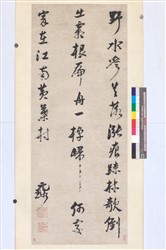 野水參差落漲痕疎林欹倒
出霜根扁舟一棹歸何處
家在江南黃葉村